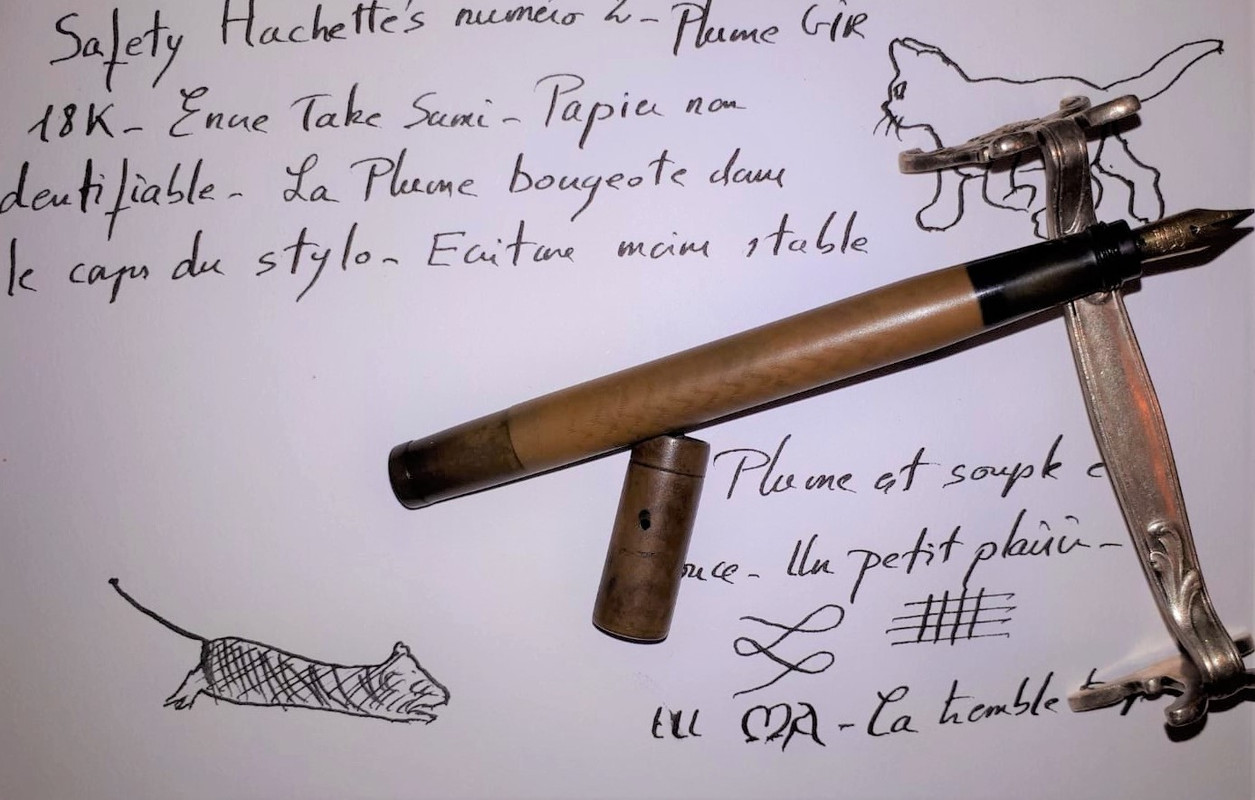 Safety Hachette's numéro 2 - Plume GIR
18K - Encre Take Sumi - Papier non
dentifiable - La Plume bougeote dans
le corps du stylo - Ecriture moins stable
Plume est souple e
ouce - Un petit plaisir -
MA - La tremble